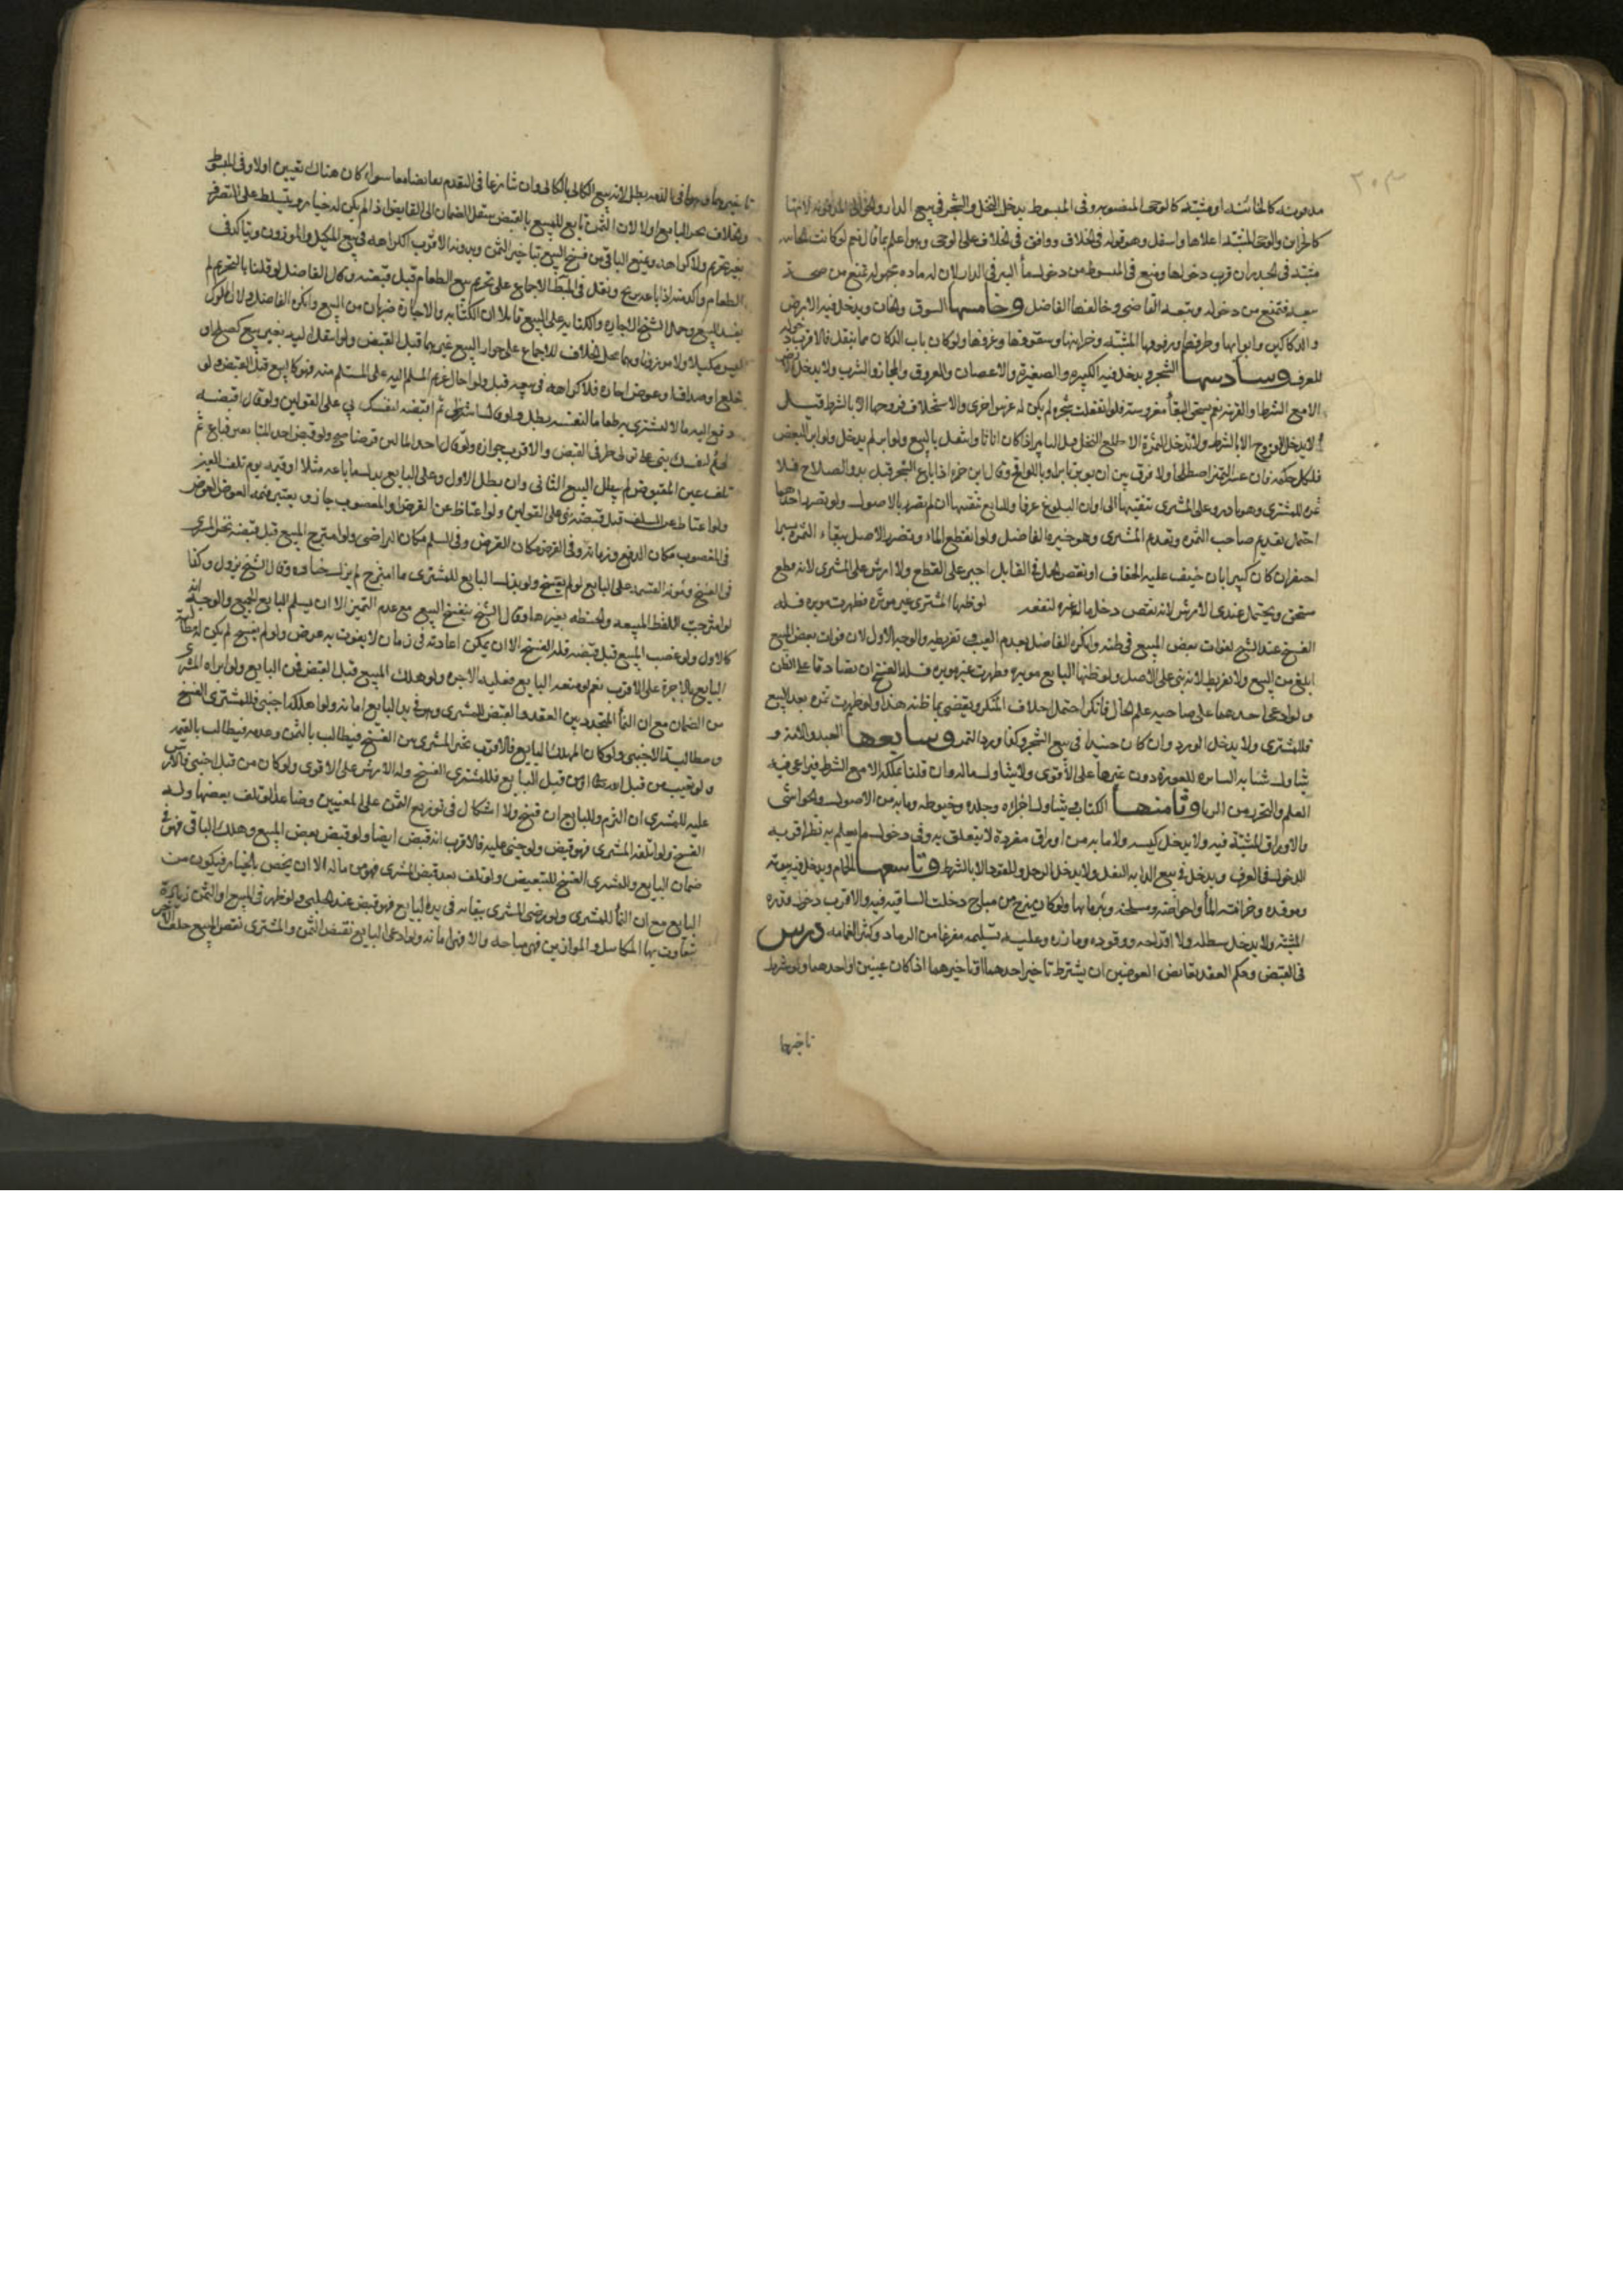 ٢٠٣
مدفونة كالخابئة او مثبتة كالرحى المنصوبة وفى المبسوط يدخل النخل والشجر فى بيع الدار
كالخزاين والرحى المثبتة اعلاها واسفل وهو قوله فى الخلاف ووافق فى الخلاف على الرحى وهو اعلم بما قال نعم لو كانت
مثبتة فى الجدران قرب دخولها ومنع فى المبسوط من دخول ماء البير فى الدار لان له مادة مجهولة تمنع من صحة
بيعه فتمنع من دخوله وتبعه القاضى وخالفهما الفاضل وخامسها السوق والخان ويدخل فيه الارض
والدكاكين وابوابها وطرقها ورفوفها المثبتة وخزاينها وسقوفها وغرفها ولو كان باب الدكان مما ينقل فالاقرب دخوله
للعرف وسادسها الشجر ويدخل فيه الكبيرة والصغيرة والاغصان والعروق والمجاز والشرب ولا يدخل الارض
الا مع الشرط او القرينة نعم يستحق البقاء مغروسة فلو انقلعت شجرة لم يكن له غرس اخرى والاستخلاف فروخها الا بالشرط
لا يدخل الفروخ الا بالشرط ولا تدخل الثمرة الا طلع النخل قبل التابير اذا كان اناثا وانتقل بالبيع ولو ابر لم يدخل ولو ابر البعض
فلكل حكمه فان عسر التميز اصطلحا ولا فرق بين ان يوبر بابرة او باللواقح وقال ابن حمزة اذا باع الشجر قبل بدو الصلاح
ثمن للمشترى وهو نادر وعلى المشترى تبقيتها الى اوان البلوغ عرفا وللبايع سقيها ان لم يضر بالاصول ولو تضر احدهما
احتمل تقديم صاحب الثمرة وتقدم المشترى وهو خيرة الفاضل ولو انقطع الماء وتضرر الاصل ببقاء الثمرة
ضررا كبيرا بان خيف عليه الجفاف او نقص الحمل فى القابل اجبر على القطع ولا ارش على المشترى لانه قطع
مستحق ويحتمل عندى الارش لانه نقص دخل مال غيره لنفعه لو ظنها المشترى غير موبرة فظهرت موبرة فله
الفسخ عند الشيخ لفوات بعض المبيع فى ظنه وانكره الفاضل لعدم العيب وتفريطه والوجه الاول لان فوات بعض المبيع
ابلغ من العيب ولا تفريط لانه بنى على الاصل ولو ظنها البايع موبرة فظهرت غير موبرة فله الفسخ ان تصادقا على الظن
ولو ادعى احدهما على صاحبه علم الحال فانكر احتمل احلاف المنكر ويقضى بما ظنه هذا ولو ظهرت ثمرة بعد البيع
فللمشترى ولا يدخل الورد وان كان جنبذا فى بيع الشجر وكذا ورد الثمر وسابعها العبد والامة و
يتناول ثيابه الساترة للعورة دون غيرها على الاقوى ولا يتناول ماله وان قلنا بملكه الا مع الشرط فيراعى فيه
العلم والتحرز من الربا وثامنها الكتاب ويتناول اجزاءه وجلده وخيوطه وما به من الاصول والحواشى
والاوراق المثبتة فيه ولا يدخل كيسه ولا ما به من اوراق مفردة لا يتعلق به وفى دخول ما يعلم به نظر اقربه
الدخول فى العرف ويدخل فى بيع الدابة النعل ولا يدخل الرحل والمقود الا بالشرط وتاسعها الحمام ويدخل فيه بيوته
وموقده وخزانته الماء واحواضه ومسلخه وبئر مائها ولو كان يمتزج من مباح دخلت الساقية فيه والاقرب دخول قدره
المثبتة ولا يدخل سطله ولا اقداحه ووقوده ومازره وعليه تسليمه مفرغا من الرماد وكثير القمامة درس
فى القبض وحكم العقد تقابض العوضين ان يشترط تاخير احدهما او تاخيرهما اذا كان عينين او احدهما ولو شرط
تاخيرهما
تاخيرهما وهما فى الذمة بطل لانه بيع الكالى بالكالى وان تنازعا فى التقدم تقابضا معا سواء كان هناك تعيين اولا وفى المبسوط
والخلاف يجبر البايع اولا لان الثمن تابع للمبيع بالقبض ينتقل الضمان الى القابض اذا لم يكن له خيار ويتسلط على التصرف
بغير تحريم ولا كراهة ويمنع الباقى من فسخ البيع بتاخير الثمن وبدونه الاقرب الكراهة فى بيع المكيل والموزون ويتاكد فى
الطعام واكد منه اذا باعه بربح ونقل فى المبسوط الاجماع على تحريم بيع الطعام قبل قبضه وقال الفاضل لو قلنا بالتحريم لم
يفسد البيع وحمل الشيخ الاجارة والكتابة على البيع قائلا ان الكتابة والاجارة ضربان من البيع وانكره الفاضل ولان المملوك
ليس مكيلا ولا موزونا وهما محل الخلاف للاجماع على جواز البيع غيرهما قبل القبض ولو انتقل اليه بغير بيع كصلح او
خلع او صداق او عوض اجارة فلا كراهة فى بيعه قبل ولو احال غريم المسلم اليه على المستلم منه فهو كالبيع قبل القبض ولو
دفع اليه مالا ليشترى به طعاما لنفسه بطل ولو قال اشتر لى ثم اقبضه لنفسك بنى على القولين ولو قال اقبضه
لى ثم لنفسك بنى على تولى طرفى القبض والاقرب جوازه ولو قال احد المالين قرضا صح ولو قبض احد المتبايعين فباع ثم
تلف عين المقبوض لم يبطل البيع الثانى وان بطل الاول وعلى البايع بدل ما باعه مثلا او قيمة يوم تلف العين
ولو اعتاض عن السلف قبل قبضه بنى على القولين ولو اعتاض عن القرض او المغصوب جاز ويعتبر قيمة العوض المعوض
فى المغصوب مكان الدفع وزمانه وفى القرض مكان القرض وفى السلم مكان التراضى ولو امتزج المبيع قبل قبضه تخير المشترى
فى الفسخ ومؤنة القسمة على البايع لو لم يفسخ ولو بذل البايع للمشترى ما امتزج لم يزل خياره وقال الشيخ يزول وكذا
لو امتزجت اللقطة المبيعة والحنطة بغيرها وقال الشيخ ينفسخ البيع مع عدم التميز الا ان يسلم البايع الجميع والوجه انه
كالاول ولو غصب المبيع قبل قبضه فله الفسخ الا ان يمكن اعادته فى زمان لا يفوت به عوض ولو لم يفسخ لم يكن له مطالبة
البايع بالاجرة على الاقرب نعم لو منعه البايع فعليه الاجرة ولو هلك المبيع قبل القبض فمن البايع ولو ابراه المشترى
من الضمان مع ان النماء المتجدد بين العقد والقبض للمشترى وهو فى يد البايع امانة ولو اهلكه اجنبى فللمشترى الفسخ
ومطالبة الاجنبى ولو كان المهلك البايع فالاقرب تخير المشترى بين الفسخ فيطالب بالثمن وعدمه فيطالب بالقيمة
ولو تعيب من قبل الله او من قبل البايع فللمشترى الفسخ وله الارش على الاقوى ولو كان من قبل اجنبى فالارش
عليه للمشترى ان التزم وللبايع ان فسخ ولا اشكال فى توزيع الثمن على المعنيين لو تلف بعضها وله
الفسخ ولو اتلفه المشترى فهو قبض ولو جنى عليه فالاقرب انه قبض ايضا ولو قبض بعض المبيع وهلك الباقى فهو فى
ضمان البايع وللمشترى الفسخ للتبعيض ولو تلف بعد قبض المشترى فهو من ماله الا ان يختص بالخيار فيكون من
البايع مع ان النماء للمشترى ولو رضى المشترى ببقائه فى يد البايع فهو قبض عند الحلبى ولو ظهر فى المبيع او الثمن زيادة
يتفاوت بها المكاييل والموازين فهى مباحة والا فهى امانة ولو ادعى البايع نقيصة الثمن والمشترى نقص المبيع حلف